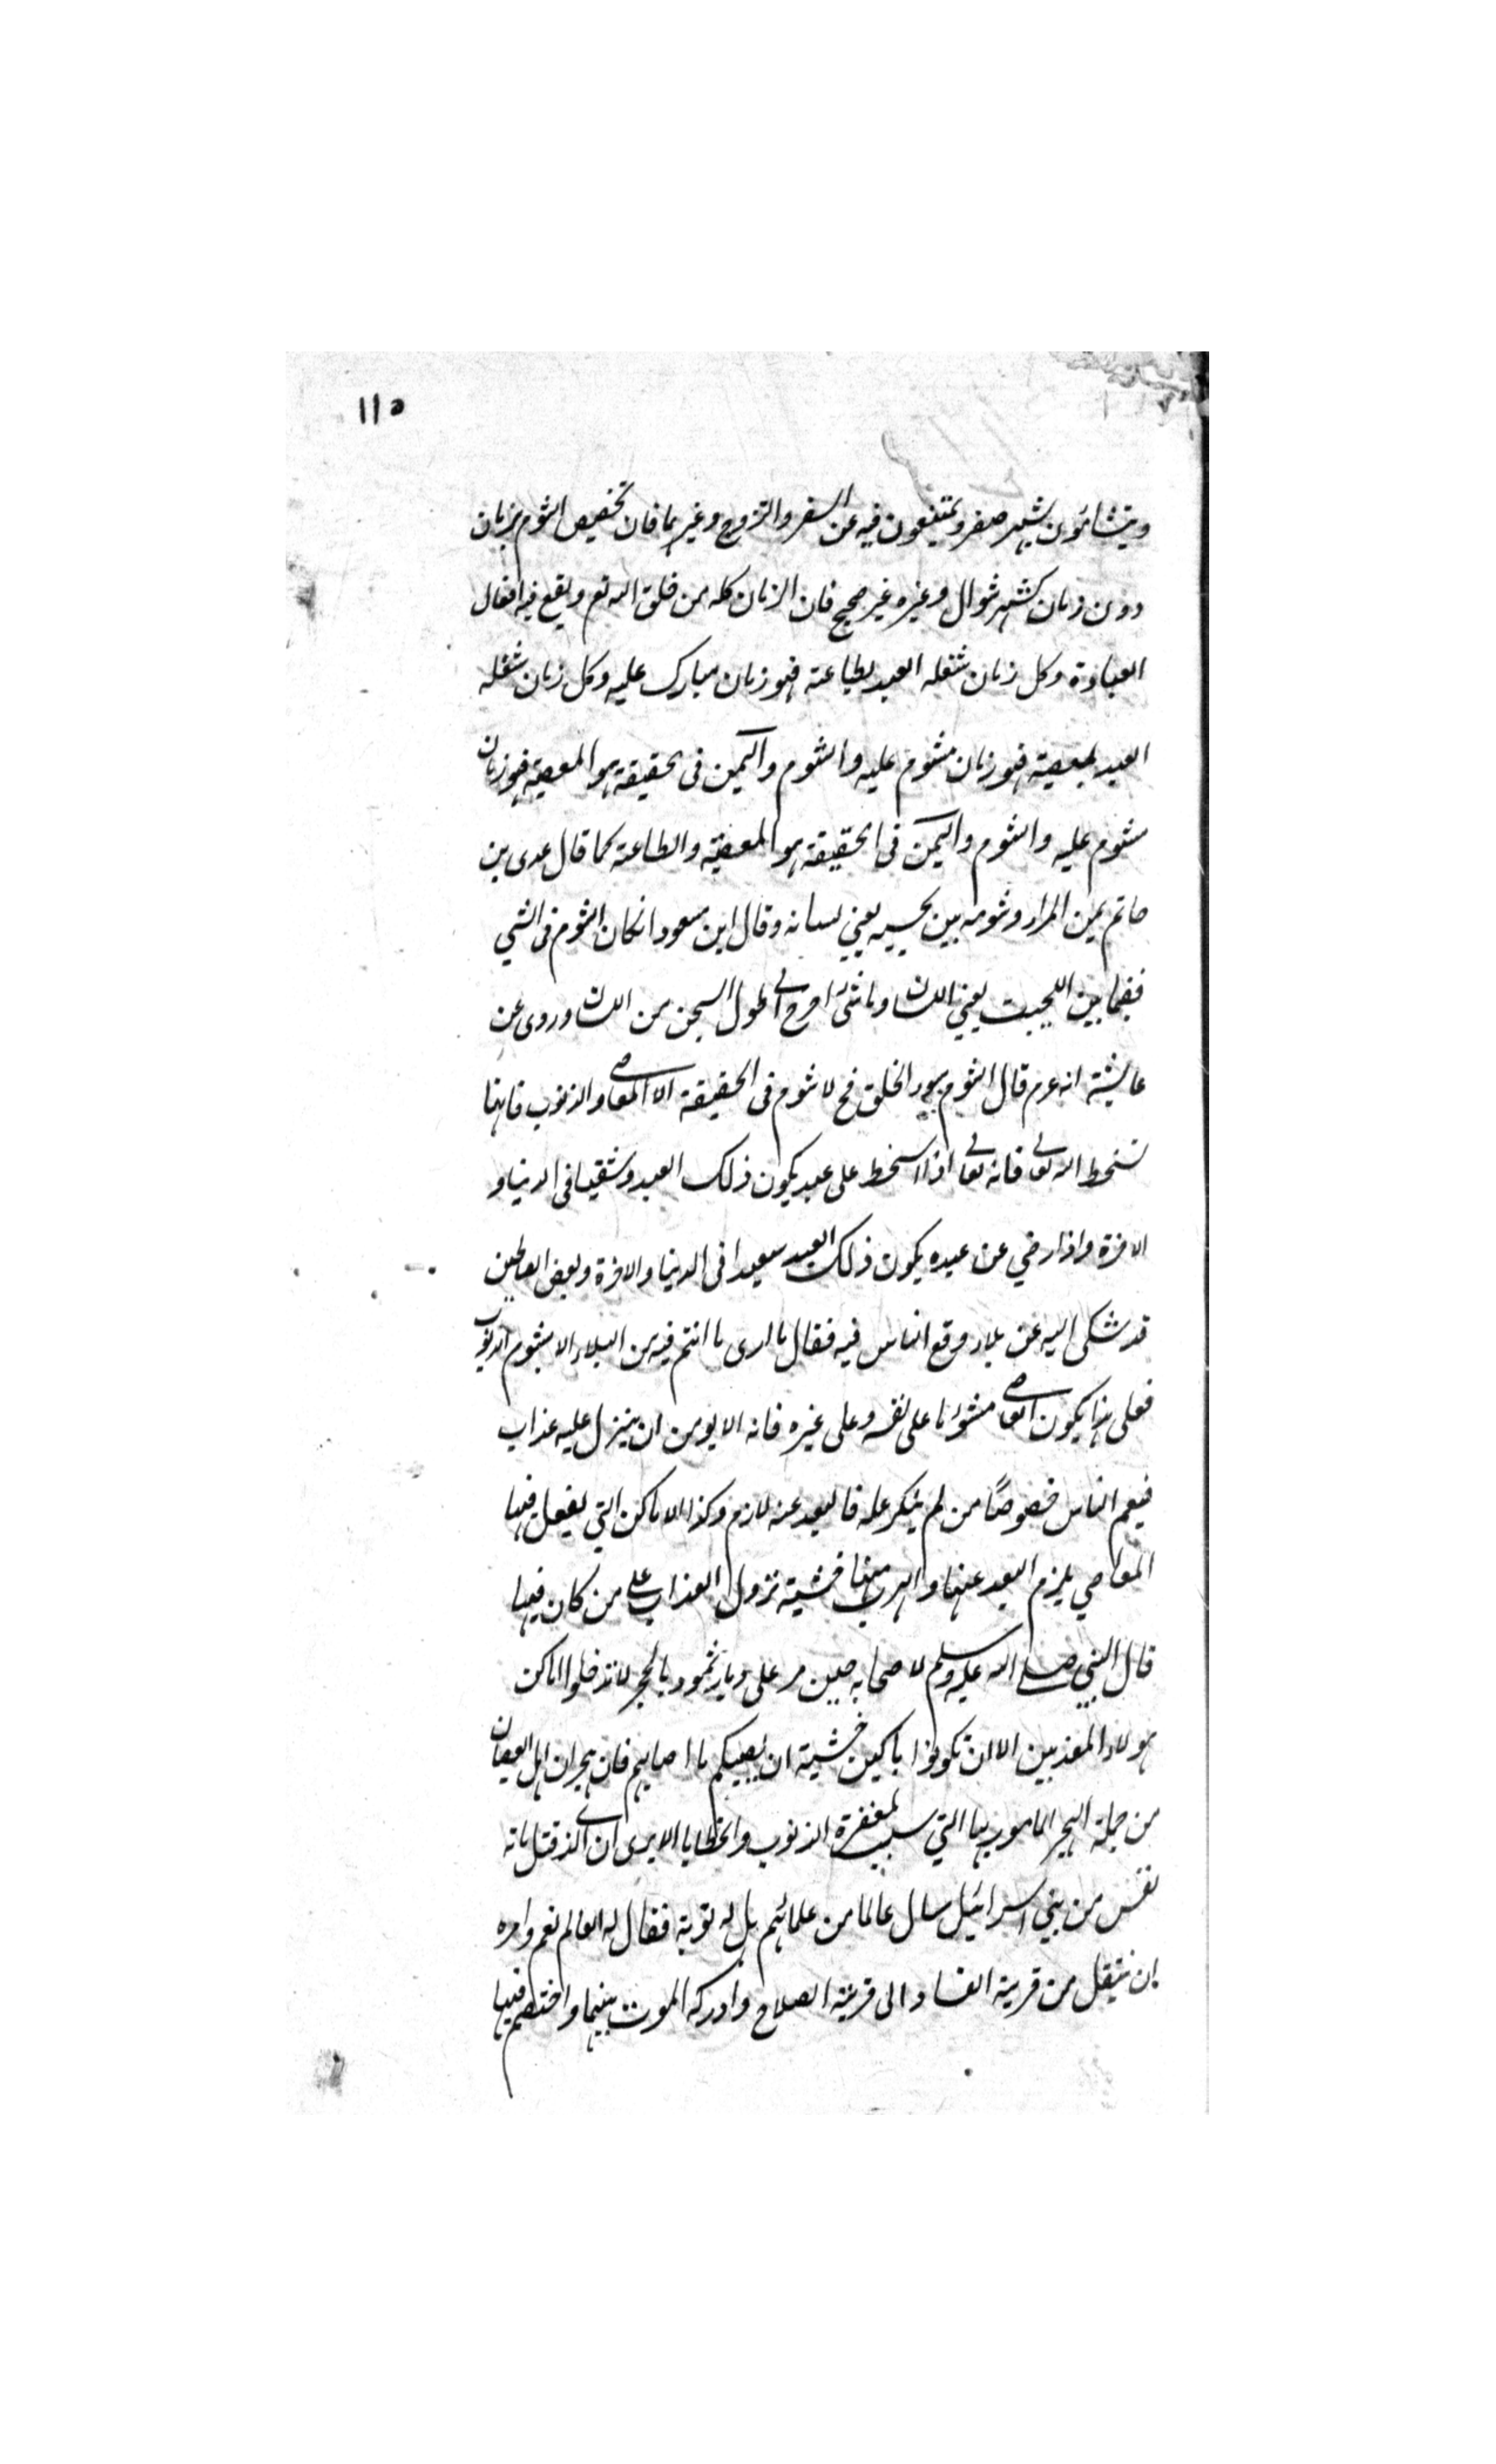 ١١٥
ويتشائمون بشهر صفر ويمتنعون فيه عن السفر والتزوج وغيرهما فان تخصيص الشوم بزمان
دون زمان كشهر شوال وغيره غير صحيح فان الزمان كله من خلق الله تع ويقع فيه افعال
العبادة وكل زمان شغله العبد بطاعته فهو زمان مبارك عليه وكل زمان شغله
العبد بمعصية فهو زمان مشوم عليه والشوم واليمن فى حقيقة هو المعصية فهو زمان
مشوم عليه والشوم واليمن فى الحقيقة هو المعصية والطاعته كما قال عدى بن
حاتم يمن المراد وشومه بين لحييه يعني لسانه وقال ابن مسعود انكان الشوم فى الشي
ففيما بين اللحيت يعني اللسان وما شئ احرج الى طول السجن من اللسان وروى عن
عائشة انه عم قال الشوم سوء الخلق فح لا شوم فى الحقيقة الا المعاصى والذنوب فانها
تسخط الله تعالى فانه تعالى اذا سخط على عبد يكون ذلك العبد وشقيا فى الدنيا و
الاخرة واذا رضي عن عبده يكون ذلك العبد سعيدا فى الدنيا والاخرة وبعض الصالحين
قد شكى اليه عن بلاء وقع الناس فيه فقال ما ارى ما انتم فيه من البلاء الا بشوم الذنوب
فعلى هذا يكون العاصى مشوئما على نفسه وعلى غيره فانه لا يومن ان ينزل عليه عذاب
فيعم الناس خصوصًا من لم ينكر عمله فالبعد عنه لازم وكذا الاماكن التي يفعل فيها
المعاصي يلزم البعد عنها والهرب منها خشية نزول العذاب على من كان فيها
قال النبي صلى الله عليه وسلم لاصحابه حين مر على ديار ثمود بالحجر لا تدخلوا اماكن
هولاء المعذبين الا ان تكونوا باكين خشية ان يصيبكم ما اصابهم فان هجران اهل العصيان
من جملة الهجر المامور بها التي سبب لمغفرة الذنوب والخطايا الا يرى ان الذى قتل مائة
نفس من بني اسرائيل سال عالما من علمائهم هل له توبة فقال له العالم نعم وامره
بان ينتقل من قرية الفساد الى قرية الصلاح وادركه الموت بينهما واختصم فيها